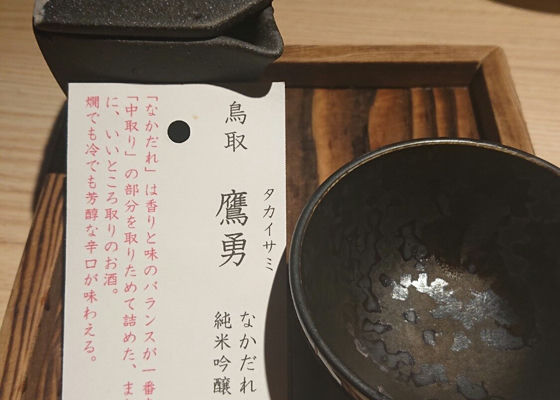 鳥取
タカイサミ
鷹勇
なかだれ
純米吟醸
「なかだれ」は香りと味のバランスが一番
「中取り」の部分を取りためて詰めた、ま
に、いいところ取りのお酒。
燗でも冷でも芳醇な辛口が味わえる。